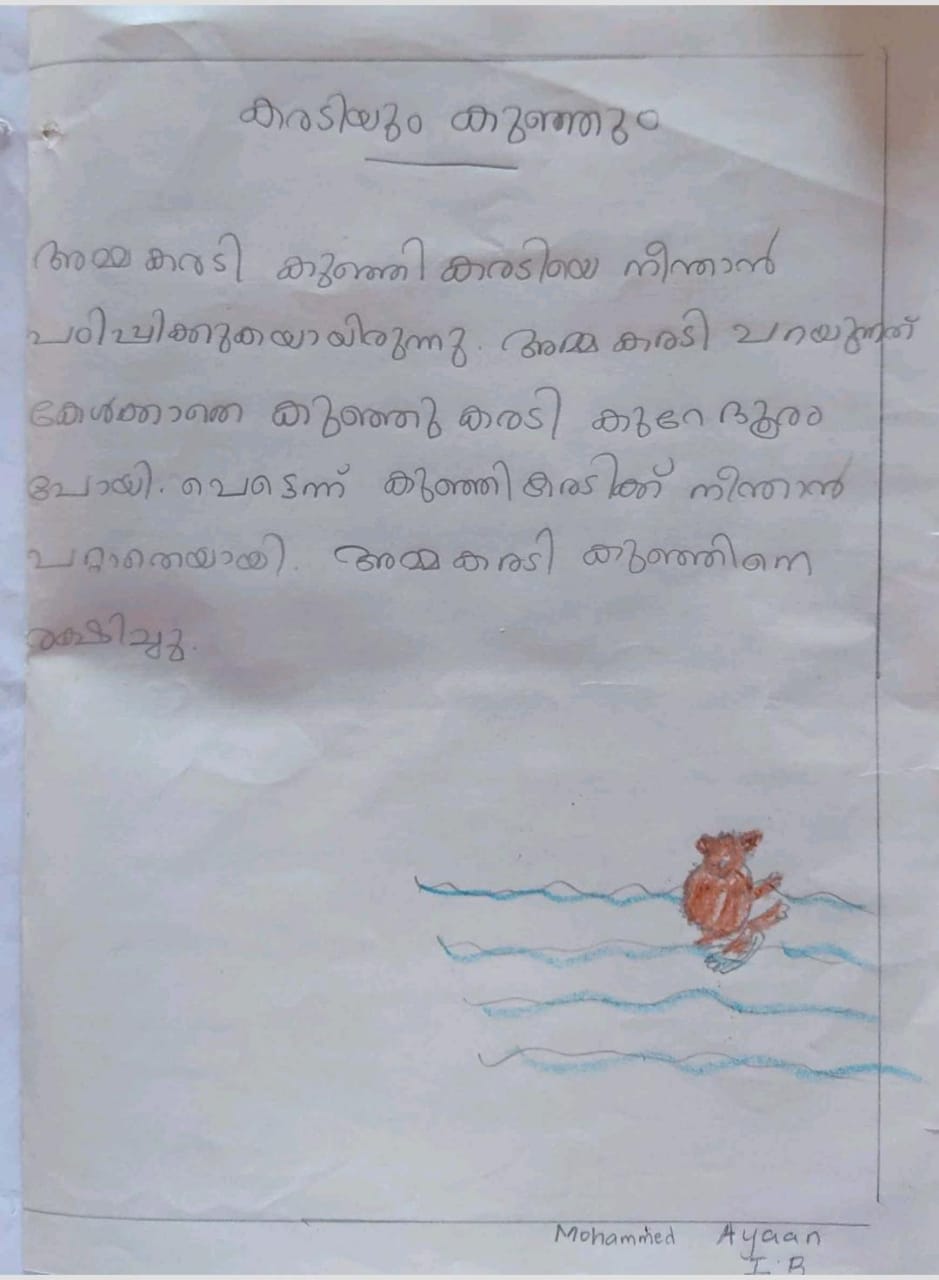 കരടിയും കുഞ്ഞും
അമ്മ കരടി കുഞ്ഞി കരടിയെ നീന്താൻ
പഠിപ്പിക്കുകയായിരുന്നു. അമ്മ കരടി പറയുന്നത്
കേൾക്കാതെ കുഞ്ഞു കരടി കുറേ ദൂരം
പോയി. പെട്ടെന്ന് കുഞ്ഞി കരടിക്ക് നീന്താൻ
പറ്റാതെയായി. അമ്മ കരടി കുഞ്ഞിനെ
രക്ഷിച്ചു.
Mohammed Ayaan
I. B